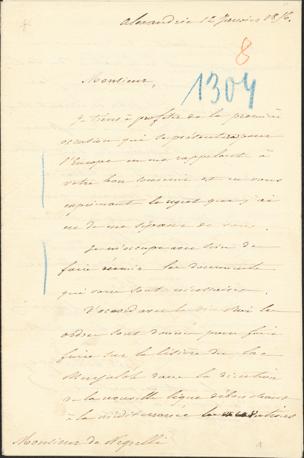 Alexandrie 12 Janvier 185
8
1304
Monsieur,
Je tiens à profiter de la première
occasion qui se présente pour
l'Europe en me rappelant à
votre bon souvenir et en vous
exprimant le regret que j'ai
eu de me séparer de vous.
Je m'occupe avec soin de
faire réunir les documents
qui vous sont nécessaires.
D'accord avec le Vice Roi les
ordres sont donnés pour faire
sur la lisière du lac
Menzaleh dans la direction
de la nouvelle ligne débouchant
à la méditerranée
Monsieur de Negrelli